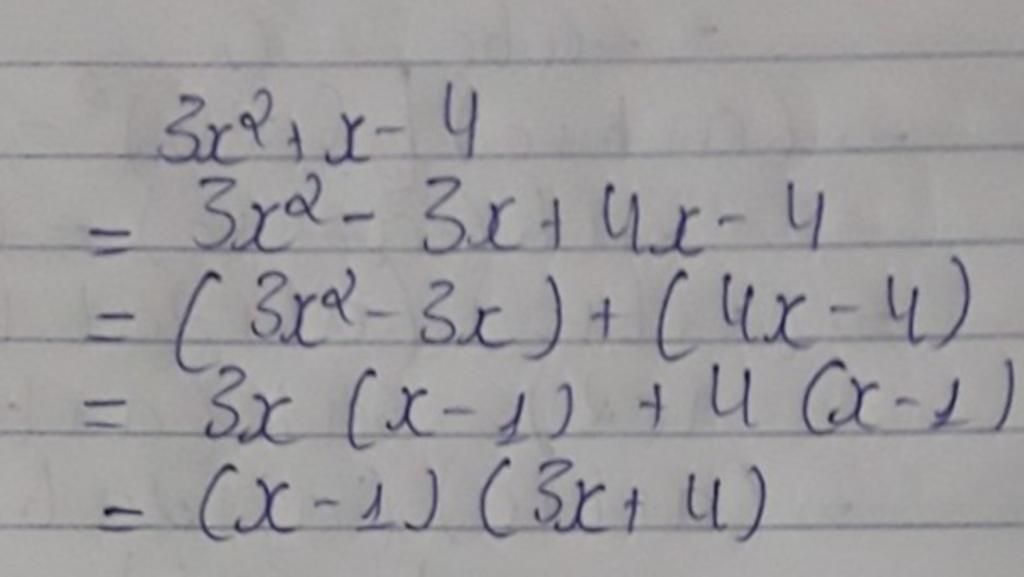 3x²+x-4
= 3x²-3x+4x-4
= (3x²-3x)+(4x-4)
= 3x(x-1)+4(x-1)
= (x-1)(3x+4)